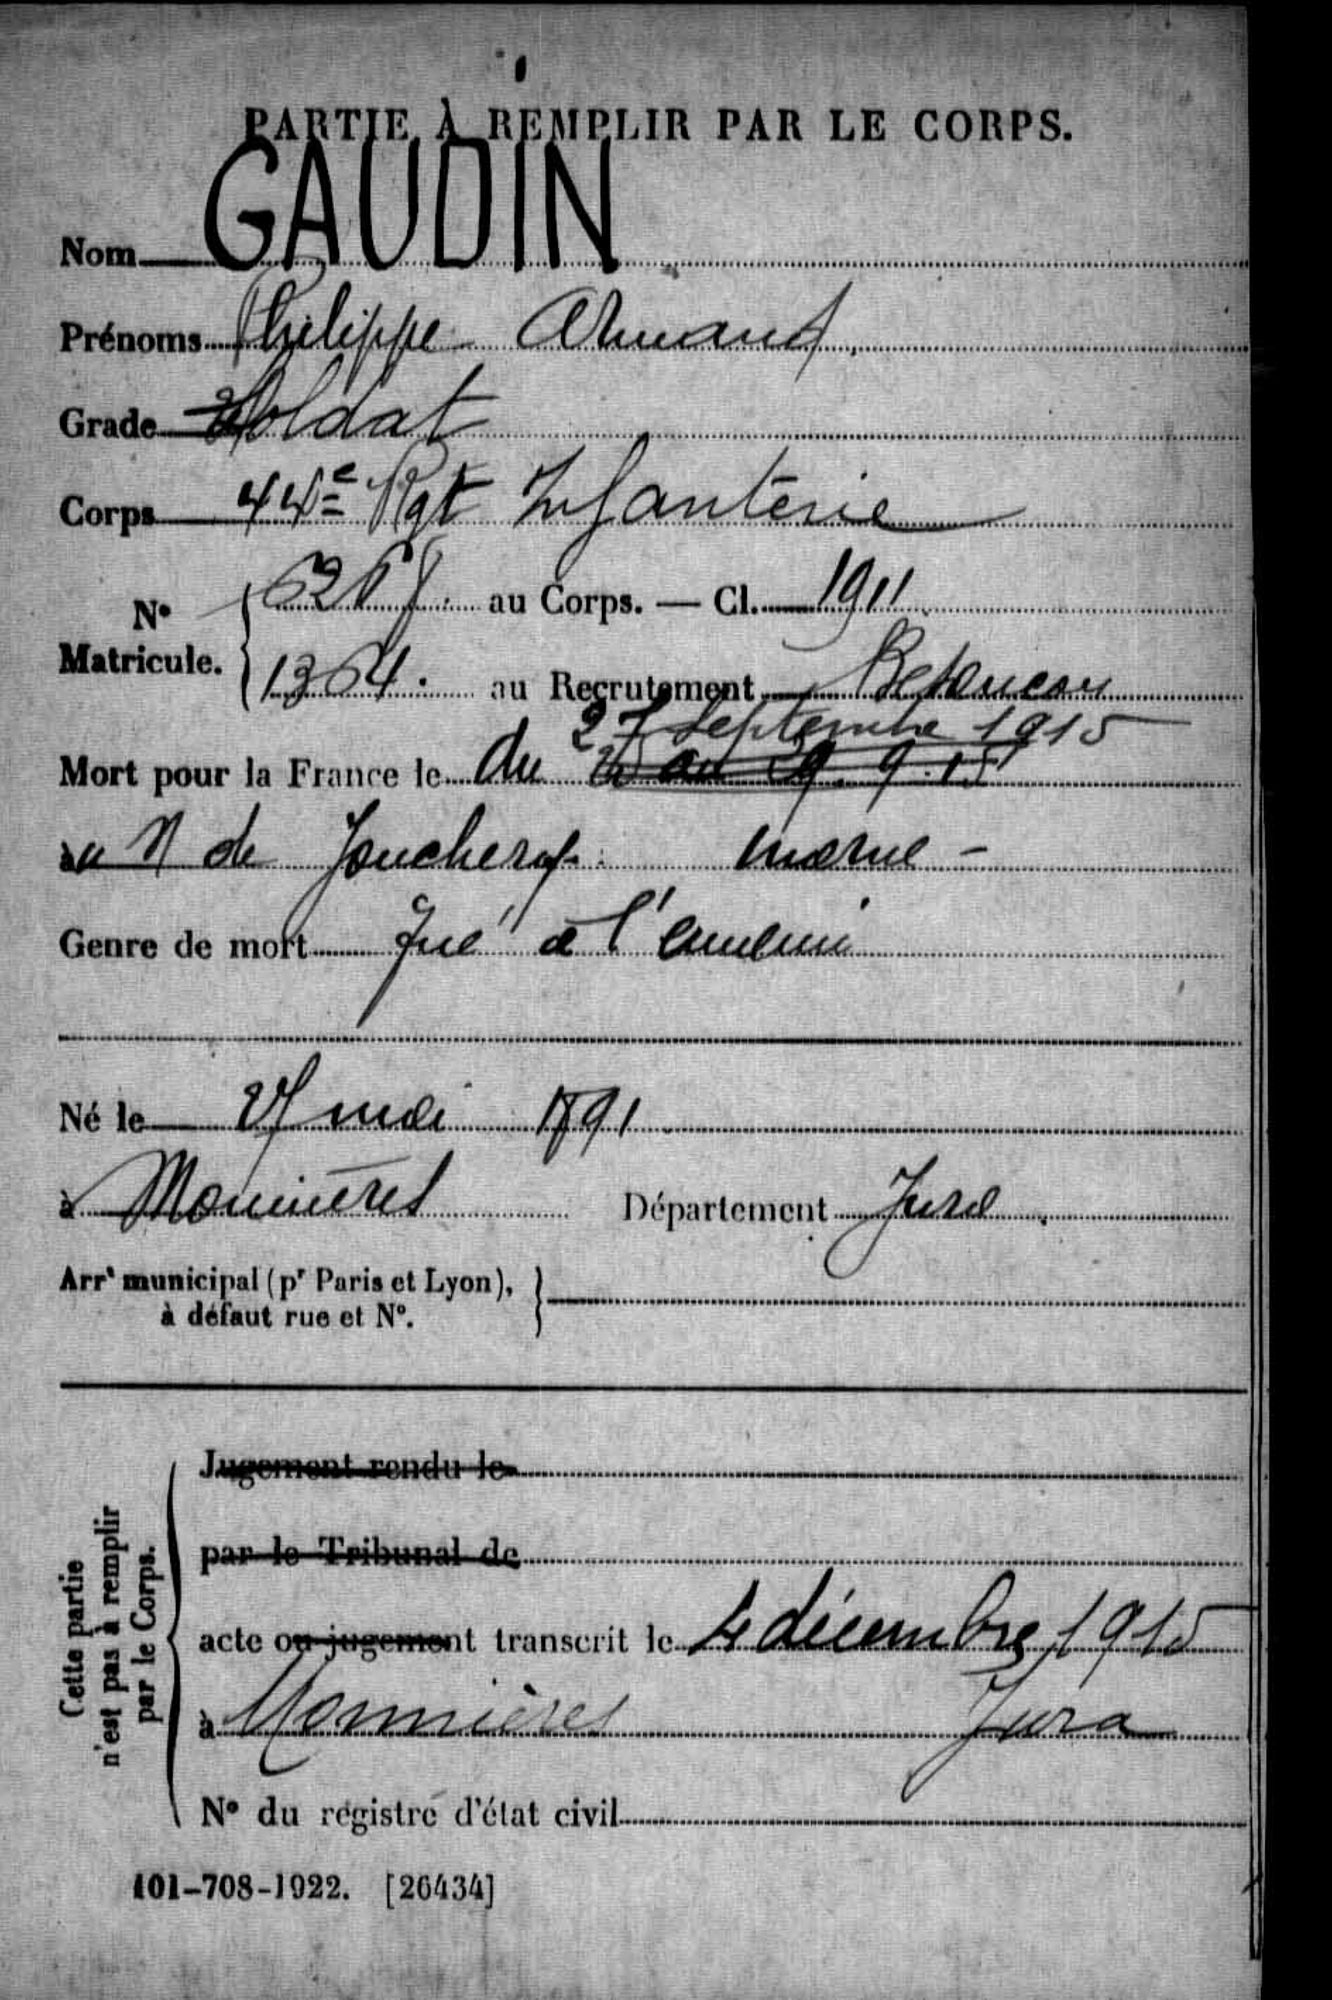 PARTIE À REMPLIR PAR LE CORPS.
Nom GAUDIN
Prénoms Philippe Armand
Grade Soldat
Corps 44e Rgt Infanterie
N° Matricule. { au Corps. — Cl. 1911
1364. au Recrutement Besançon
27 Septembre 1915
Mort pour la France le du 25 au 29.9.15
au N de Jonchery. Marne -
Genre de mort Tué à l'ennemi
Né le 27 mai 1891
à Monnières Département Jura
Arrt municipal (pr Paris et Lyon),
à défaut rue et N°.
Cette partie
n'est pas à remplir
par le Corps.
Jugement rendu le
par le Tribunal de
acte ou jugement transcrit le 4 décembre 1915
à Monnières Jura
N° du registre d'état civil
101-708-1922. [26434]